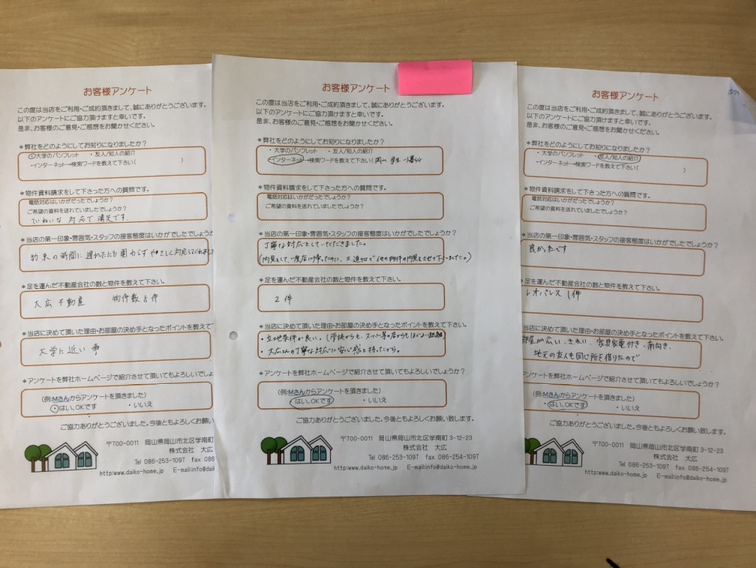 お客様アンケート
この度は当店をご利用・ご成約頂きまして、誠にありがとうございます。
以下のアンケートにご協力頂けますと幸いです。
是非、お客様のご意見・ご感想をお聞かせください。
*弊社をどのようにしてお知りになりましたか?
・大学のパンフレット ・友人/知人の紹介
・インターネット→検索ワードを教えて下さい( )
*物件資料請求をして下さった方への質問です。
電話対応はいかがだったでしょうか?
ご希望の資料を送れていましたでしょうか?
ていねいな対応で満足です
*当店の第一印象・雰囲気・スタッフの接客態度はいかがでしたでしょうか?
約束の時間に遅れたにも関わらずやさしく対応してくれました
*足を運んだ不動産会社の数と物件を教えて下さい。
大広不動産 物件数8件
*当店に決めて頂いた理由・お部屋の決め手となったポイントを教えて下さい。
大学に近い事
*アンケートを弊社ホームページで紹介させて頂いてもよろしいでしょうか?
(例:Mさんからアンケートを頂きました)
・はい、OKです ・いいえ
ご協力ありがとうございました。今後ともよろしくお願い
〒700-0011 岡山県岡山市北区学南町
株式会社 大広
Tel 086-253-1097 fax 086
http:www.daiko-home.jp E-mail:info@da
お客様アンケート
この度は当店をご利用・ご成約頂きまして、誠にありがとうございます。
以下のアンケートにご協力頂けますと幸いです。
是非、お客様のご意見・ご感想をお聞かせください。
*弊社をどのようにしてお知りになりましたか?
・大学のパンフレット ・友人/知人の紹介
・インターネット→検索ワードを教えて下さい(岡山 学生
*物件資料請求をして下さった方への質問です。
電話対応はいかがだったでしょうか?
ご希望の資料を送れていましたでしょうか?
*当店の第一印象・雰囲気・スタッフの接客態度はいかがでしたでしょうか?
丁寧な対応をしていただきました。
*足を運んだ不動産会社の数と物件を教えて下さい。
2件
*当店に決めて頂いた理由・お部屋の決め手となったポイントを教えて下さい。
・立地条件が良い。(学校からも、スーパー等の店からも
・大広さんの丁寧な対応に安心感を持ったから。
*アンケートを弊社ホームページで紹介させて頂いてもよろしいでしょうか?
(例:Mさんからアンケートを頂きました)
・はい、OKです ・いいえ
ご協力ありがとうございました。今後ともよろしくお願い致します。
〒700-0011 岡山県岡山市北区学南町 3-12-23
株式会社 大広
Tel 086-253-1097 fax 086-254-1097
http:www.daiko-home.jp E-mail:info@daiko-home.jp
お客様アンケート
この度は当店をご利用・ご成約頂きまして、誠にありがとうございます。
以下のアンケートにご協力頂けますと幸いです。
是非、お客様のご意見・ご感想をお聞かせください。
*弊社をどのようにしてお知りになりましたか?
・大学のパンフレット ・友人/知人の紹介
・インターネット→検索ワードを教えて下さい( )
*物件資料請求をして下さった方への質問です。
電話対応はいかがだったでしょうか?
ご希望の資料を送れていましたでしょうか?
*当店の第一印象・雰囲気・スタッフの接客態度はいかがでしたでしょうか?
良かったです
足を運んだ不動産会社の数と物件を教えて下さい。
レオパレス 1件
当店に決めて頂いた理由・お部屋の決め手となったポイントを教えて下さい。
部屋が広い、きれい、家具家電付き、南向き、
地元の友人も同じ所を借りたので
アンケートを弊社ホームページで紹介させて頂いてもよろしいでしょうか?
(例:Mさんからアンケートを頂きました)
・はい、OKです ・いいえ
ご協力ありがとうございました。今後ともよろしくお願い致します。
〒700-0011 岡山県岡山市北区学南町 3-12-23
株式会社 大広
Tel 086-253-1097 fax 086-254-1097
http:www.daiko-home.jp E-mail:info@daiko-home.jp